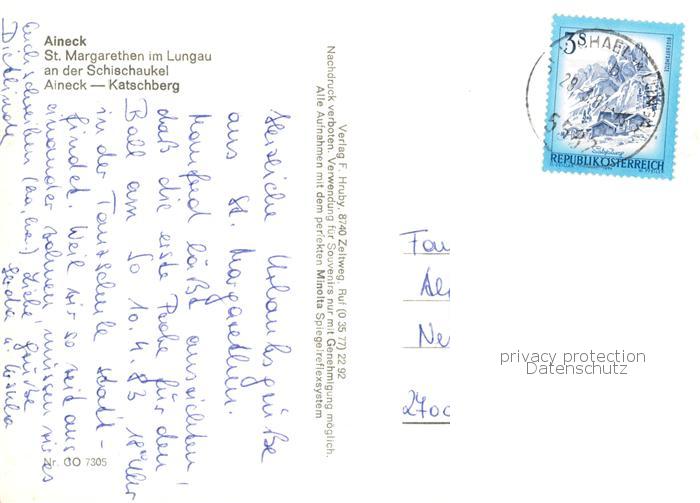 Aineck
St. Margarethen im Lungau
an der Schischaukel
Aineck — Katschberg
Herzliche Urlaubsgrüße
aus St. Margarethen.
Manfred läßt ausrichten,
daß die erste Probe für den
Ball am So 10.4.83 18 Uhr
in der Tanzschule statt-
findet. Weil wir so weit aus
einander wohnen, müssen wir es
euch schreiben (ha, ha!) Liebe Grüße
Dietlinde, Gerda u. Ursula
Nr. GO 7305
Verlag F. Hruby, 8740 Zeltweg, Ruf (0 35 77) 22 92
Nachdruck verboten. Verwendung für Souvenirs nur mit Genehmigung möglich.
Alle Aufnahmen mit dem perfekten Minolta Spiegelreflexsystem
3S
REPUBLIK ÖSTERREICH
Fam
Al
Ne
2700
privacy protection
Datenschutz